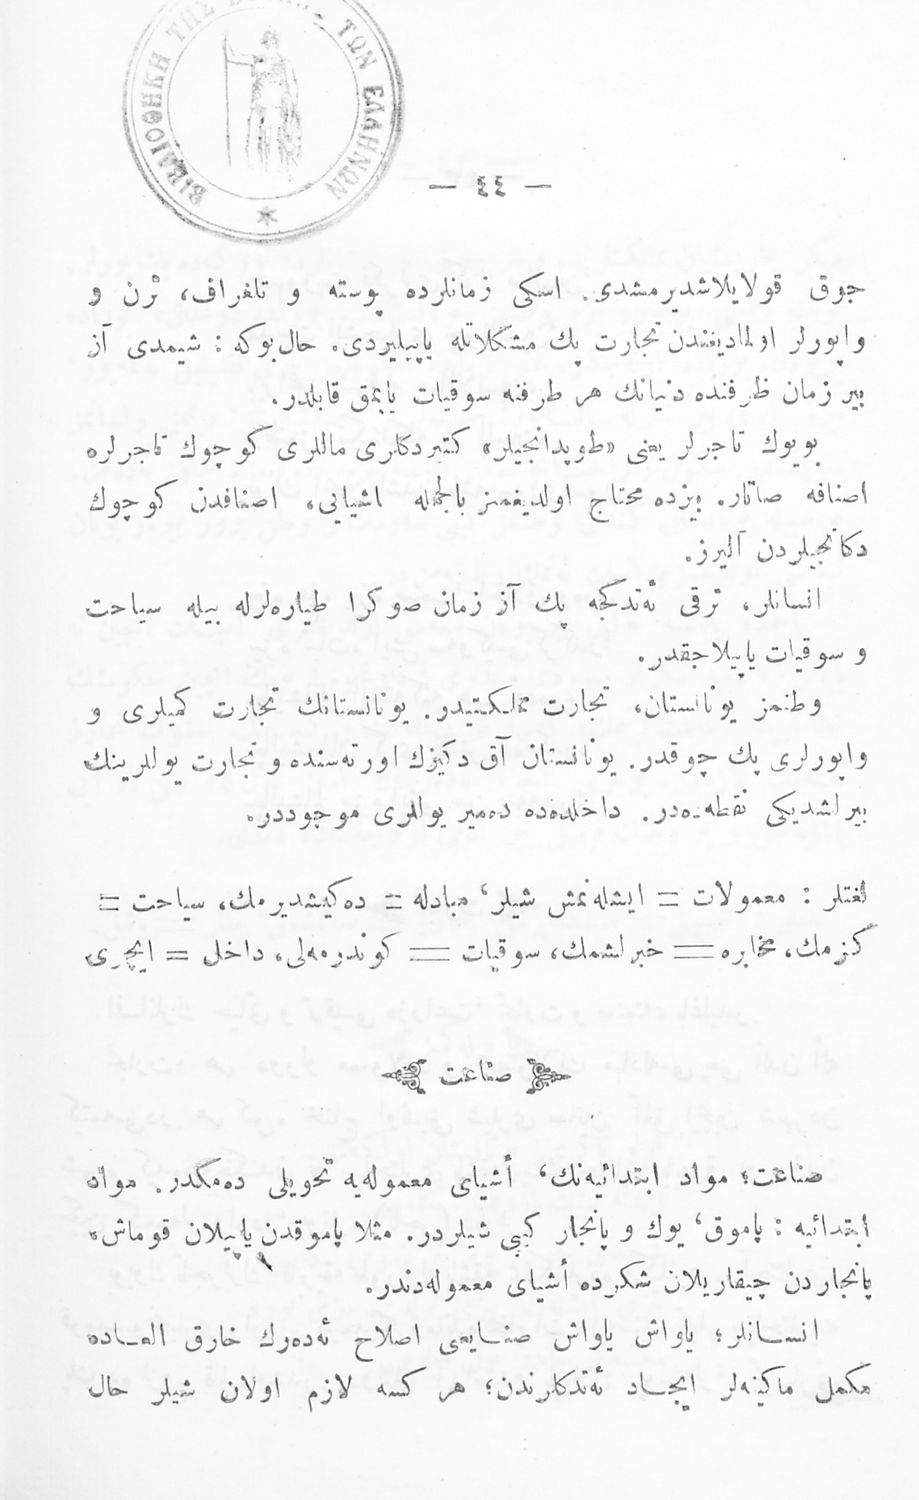 ΒΙΒΛΙΟΘΗΚΗ ΤΗΣ ΒΟΥΛΗΣ ΤΩΝ ΕΛΛΗΝΩΝ
— ٤٤ —
جوق قولايلاشديرمشدى. اسكى زمانلرده پوسته و تلغراف، ترن و
واپورلر اولماديغندن تجارت پك مشكلاتله ياپيليردى. حال‌بوكه : شيمدى آز
بير زمان ظرفنده دنيانك هر طرفنه سوقيات ياپمق قابلدر.
بويوك تاجرلر يعنى «طوپدانجيلر» كتيردكلرى ماللرى كوچوك تاجرلره
اصنافه صاتار. بيزده محتاج اولديغمز بالجمله اشيايى، اصنافدن كوچوك
دكانجيلردن آليرز.
انسانلر، ترقى ئه‌تدكجه پك آز زمان صوكرا طياره‌لرله بيله سياحت
و سوقيات ياپيلاجقدر.
وطنمز يونانستان، تجارت مملكتيدر. يونانستانك تجارت كميلرى و
واپورلرى پك چوقدر. يونانستان آق دكيزك اورته‌سنده و تجارت يوللرينك
بيرلشديكى نقطه‌ده‌در. داخلنده‌ده ده‌مير يوللرى موجوددر.
لغتلر : معمولات = ايشله‌نمش شيلر، مبادله = ده‌كيشديرمك، سياحت =
كزمك، مخابره = خبرلشمك، سوقيات = كوندرمه‌لى، داخل = ايچرى
صناعت
صناعت؛ مواد ابتدائيه‌نك، أشياى معموله‌يه تحويلى ده‌مكدر. مواد
ابتدائيه : پاموق، يوك و پانجار كبى شيلردر. مثلا پاموقدن ياپيلان قوماش،
پانجاردن چيقاريلان شكرده أشياى معموله‌دندر.
انسانلر؛ ياواش ياواش صنايعى اصلاح ئه‌ده‌رك خارق العاده
مكمل ماكينه‌لر ايجاد ئه‌تدكلرندن؛ هر كسه لازم اولان شيلر حال